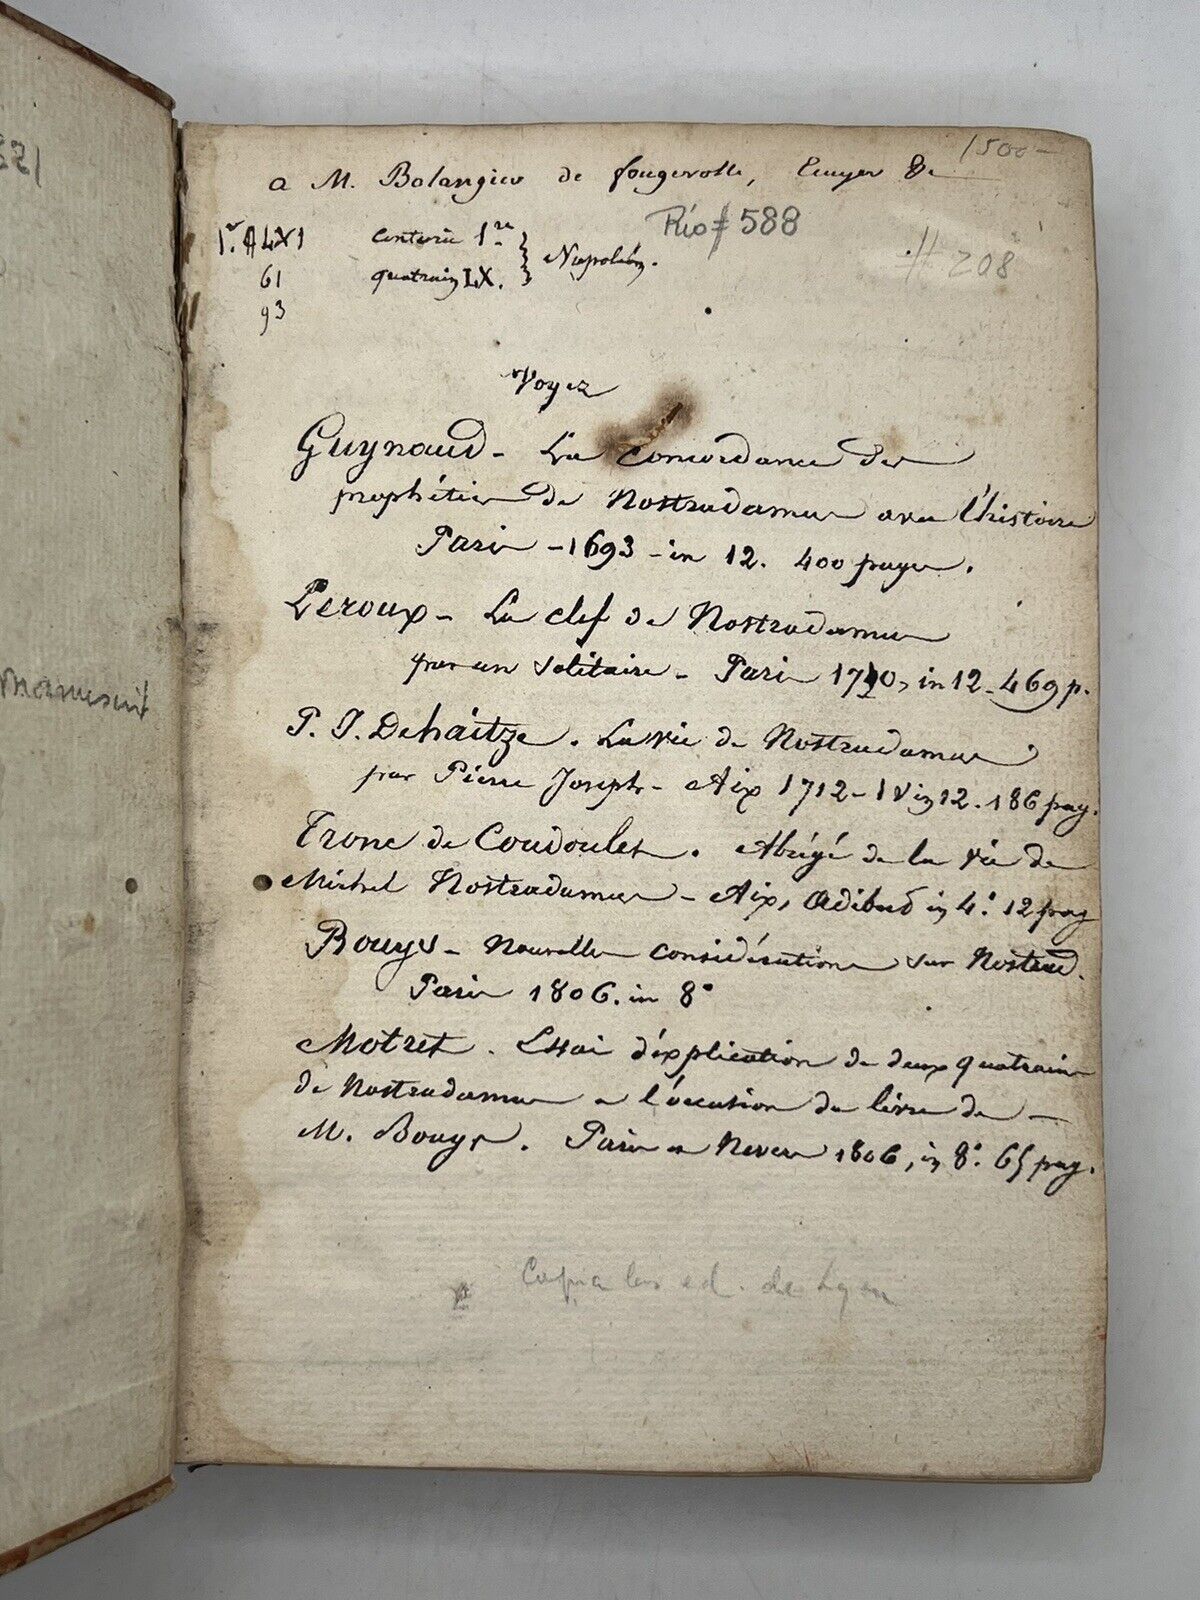 321
manuscrit
1500-
a M. Balangier de fougerolle, Ecuyer &c
Rio # 588
1r. A LXI centurie 1re
# 208
61 quatrain LX. Napoléon.
93
Voyez
Guynaud - La Concordance des
prophéties de Nostradamus avec l'histoire
Paris - 1693 - in 12. 400 pages.
Leroux - La clef de Nostradamus
par un Solitaire - Paris 1710, in 12 - 469 p.
P. J. Dehaitze. La vie de Nostradamus
par Pierre Joseph - Aix 1712 - 1 V in 12. 186 pag.
Tronc de Coudoulet. Abrégé de la vie de
Michel Nostradamus - Aix, Adibert in 4°. 12 pag
Bouys - Nouvelles considérations sur Nostrad.
Paris 1806. in 8°
Motret. Essai d'explication de deux quatrains
de Nostradamus a l'occasion du livre de -
M. Bouys. Paris a Nevers 1806, in 8°. 65 pag.
Copia las ed. de Lyon